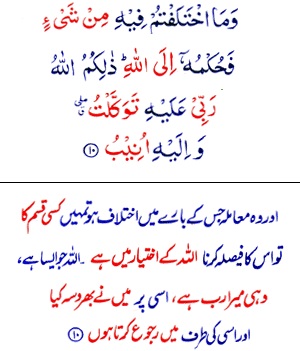 وَمَا اخْتَلَفْتُمْ فِيْهِ مِنْ شَیْءٍ
فَحُكْمُهٗۤ اِلَی اللّٰهِ ؕ ذٰلِكُمُ اللّٰهُ
رَبِّیْ عَلَیْهِ تَوَكَّلْتُ
وَ اِلَیْهِ اُنِیْبُ ﴿۱۰﴾
اور وہ معاملہ جس کے بارے میں اختلاف ہو تمہیں کسی قسم کا
تو اس کا فیصلہ کرنا اللہ کے اختیار میں ہے ۔ اللہ جو ایسا ہے،
وہی میرا رب ہے، اسی پر میں نے بھروسہ کیا
اور اسی کی طرف میں رجوع کرتا ہوں ﴿۱۰﴾